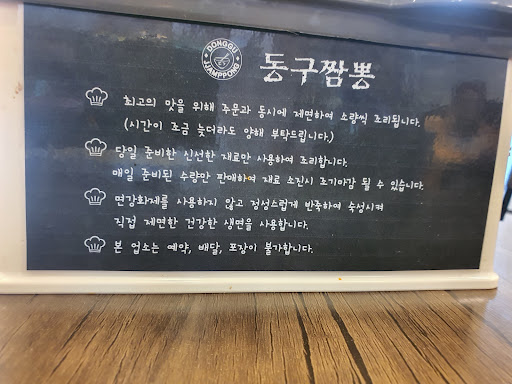 DONGGU
JJAMPPONG
동구짬뽕
최고의 맛을 위해 주문과 동시에 제면하여 소량씩 조리됩니다.
(시간이 조금 늦더라도 양해 부탁드립니다.)
당일 준비한 신선한 재료만 사용하여 조리합니다.
매일 준비된 수량만 판매하여 재료 소진시 조기마감 될 수 있습니다.
면강화제를 사용하지 않고 정성스럽게 반죽하여 숙성시켜
직접 제면한 건강한 생면을 사용합니다.
본 업소는 예약, 배달, 포장이 불가합니다.